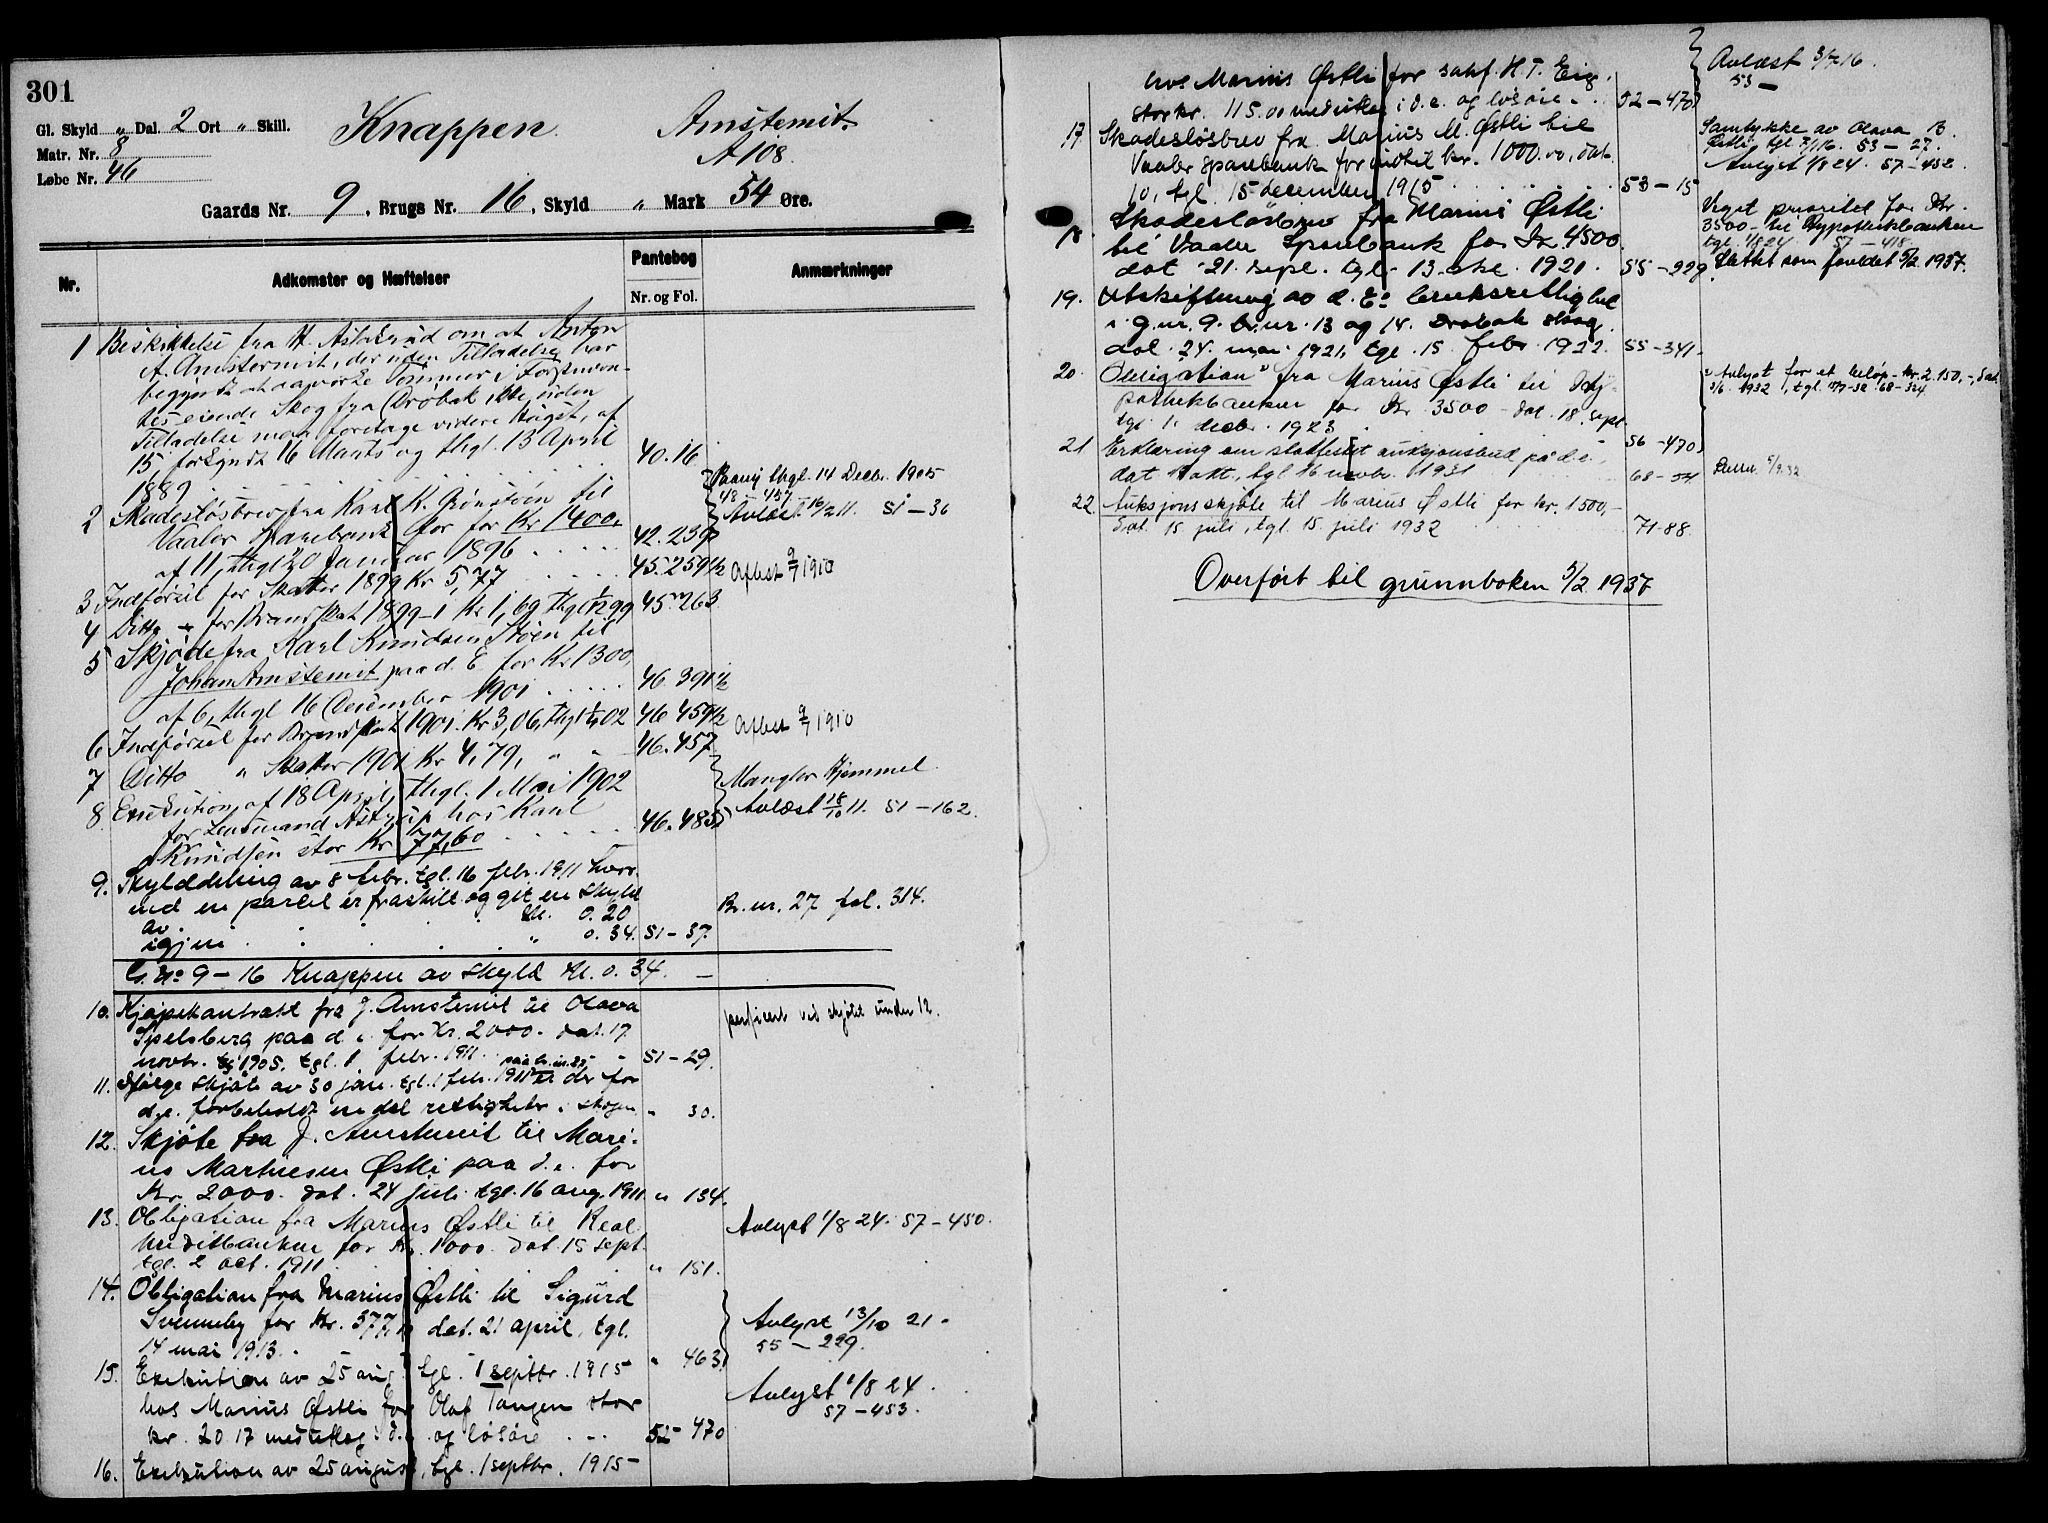 301
Gl. Skyld „ Dal. 2 Ort „ Skill.
Matr. Nr. 8
Løbe Nr. 46
Knappen
Amstemit.
A 108.
Gaards Nr. 9, Brugs Nr. 16, Skyld „ Mark 54 Øre.
Nr. Adkomster og Hæftelser Pantebog Nr. og Fol. Anmærkninger
1 Beskikkelse fra H. om at Anton
A. Amstemit, der uden Tilladelse har
begyndt at Tømmer i
Skog fra Drøbak ikke uden
Tilladelse maa foretage videre Hugst, af
15, forkyndt 16 Marts og thgl. 13 April
1889 40.16
2 Skadesløsbrev fra Karl K. Grønstøen til
Vaaler Sparebank for Kr 1400,
af 11, thgl 20 Januar 1896 42.239
Paany thgl. 14 Decbr. 1905
48 - 457
Avlæst 16/2 11. 51 - 36
3 Indførsel for Skatter 1899 Kr 5,77 45.259½ Aflest 9/7 1910
4 Ditto for Brandskat 1899 1 Kr 1,69 45.263
5 Skjøde fra Karl Knudsen Støen til
Johan Amstemit paa d. E for Kr 1300,
af 6, thgl 16 December 1901 46.391½
6 Indførsel for Brandskat 1901 Kr 3,06, 46 459½ Aflest 9/7 1910
7 Ditto „ Skatter 1901 Kr 4,79, „ 46.457
8 Exekution af 18 April, thgl. 1 Mai 1902
for Lensmand Astrup hos Karl
Knudsen stor Kr 77,60 46.485
Mangler Hjemmel
Avlæst 18/10 11. 51 - 162
9. Skylddeling av 8 febr. tgl. 16 febr. 1911 hvor
ved en parcel er fraskilt og git en skyld
av M. 0.20
igjen „ 0.34. 51 - 37.
Br. nr. 27 fol. 314.
G. No 9 - 16 Knappen av skyld M. 0.34. —
10. Kjøpekontrakt fra J. Amstemit til Olava
Spelsberg paa d. e. for Kr. 2000. dat. 17
novbr. 1905, tgl. 1 febr. 1911 51 - 29.
perficert ved skjøte under 12.
11. Ifølge skjøte av 30 jan. tgl. 1 febr. 1911 paa br. nr. 25 er der for
d. e. forbeholdt en del rettigheter i skogen „ 30.
12. Skjøte fra J. Amstemit til Mari-
us Martinsen Østli paa d. e. for
Kr. 2000. dat. 24 juli tgl. 16 aug. 1911 „ 134.
13. Obligation fra Marius Østli til Real
kreditbanken for Kr. 1000. dat. 15 sept.
tgl. 2 oct. 1911 „ 151.
Avlyst 1/8 24. 57 - 450.
14. Obligation fra Marius Østli til Sigurd
Svenneby for Kr. 377, dat. 21 april, tgl.
14 mai 1913. „ 463
Avlyst 13/10 21.
55 - 229.
15. Exekution av 25 aug tgl. 1 septbr. 1915
hos Marius Østli for Olaf Tangen stor
kr. 20.17 med utlæg i d. e. og løsøre 52 - 470
Avlyst 1/8 24.
57 - 453.
16. Exekution av 25 august, tgl. 1 septbr. 1915
hos Marius Østli for sakf. H. T. Eig.
stor kr. 115.00 med utlæg i d. e. og løsøre 52 - 470
Avlæst 3/7 16.
53 —
17 Skadesløsbrev fra Marius M. Østli til
Vaaler sparebank for indtil kr. 1000.00, dat.
10, tgl. 15 december 1915 53 - 15
Samtykke av Olava B.
Østli tgl 3/7 16. 53 - 27.
Avlyst 1/8 24. 57 - 452.
18 Skadesløsbrev fra Marius Østli
til Vaaler Sparebank for Kr. 4500
dat. 21. sept. tgl. 13. okt. 1921. 55 - 229
Veget prioritet for Kr.
3500 - til Hypothekbanken
tgl. 1/8 24 57 - 418
Slettet som foreldet 5/2 1937.
19. Utskiftning av d. Es bruksrettighet
i g. nr. 9. br. nr. 13 og 14. Drøbak skog.
dat. 24. mai 1921, tgl. 15. febr. 1922. 55 - 341.
20. Obligation fra Marius Østli til Hy-
pothekbanken for Kr. 3500 - dat. 18. sept.
tgl. 1. decbr. 1923 56 - 470
Avlyst for et beløp - kr. 2.150, -, dat.
1932, tgl. 68 - 324
21 Erklæring om stadfestet auksjonsbud på d. e.,
dat. okt., tgl. 16 novbr. 1931 68 - 54
22. Auksjonsskjøte til Marius Østli for kr. 1500,-
dat. 15 juli, tgl. 15 juli 1932 71 - 88
Overført til grunnboken 5/2 1937